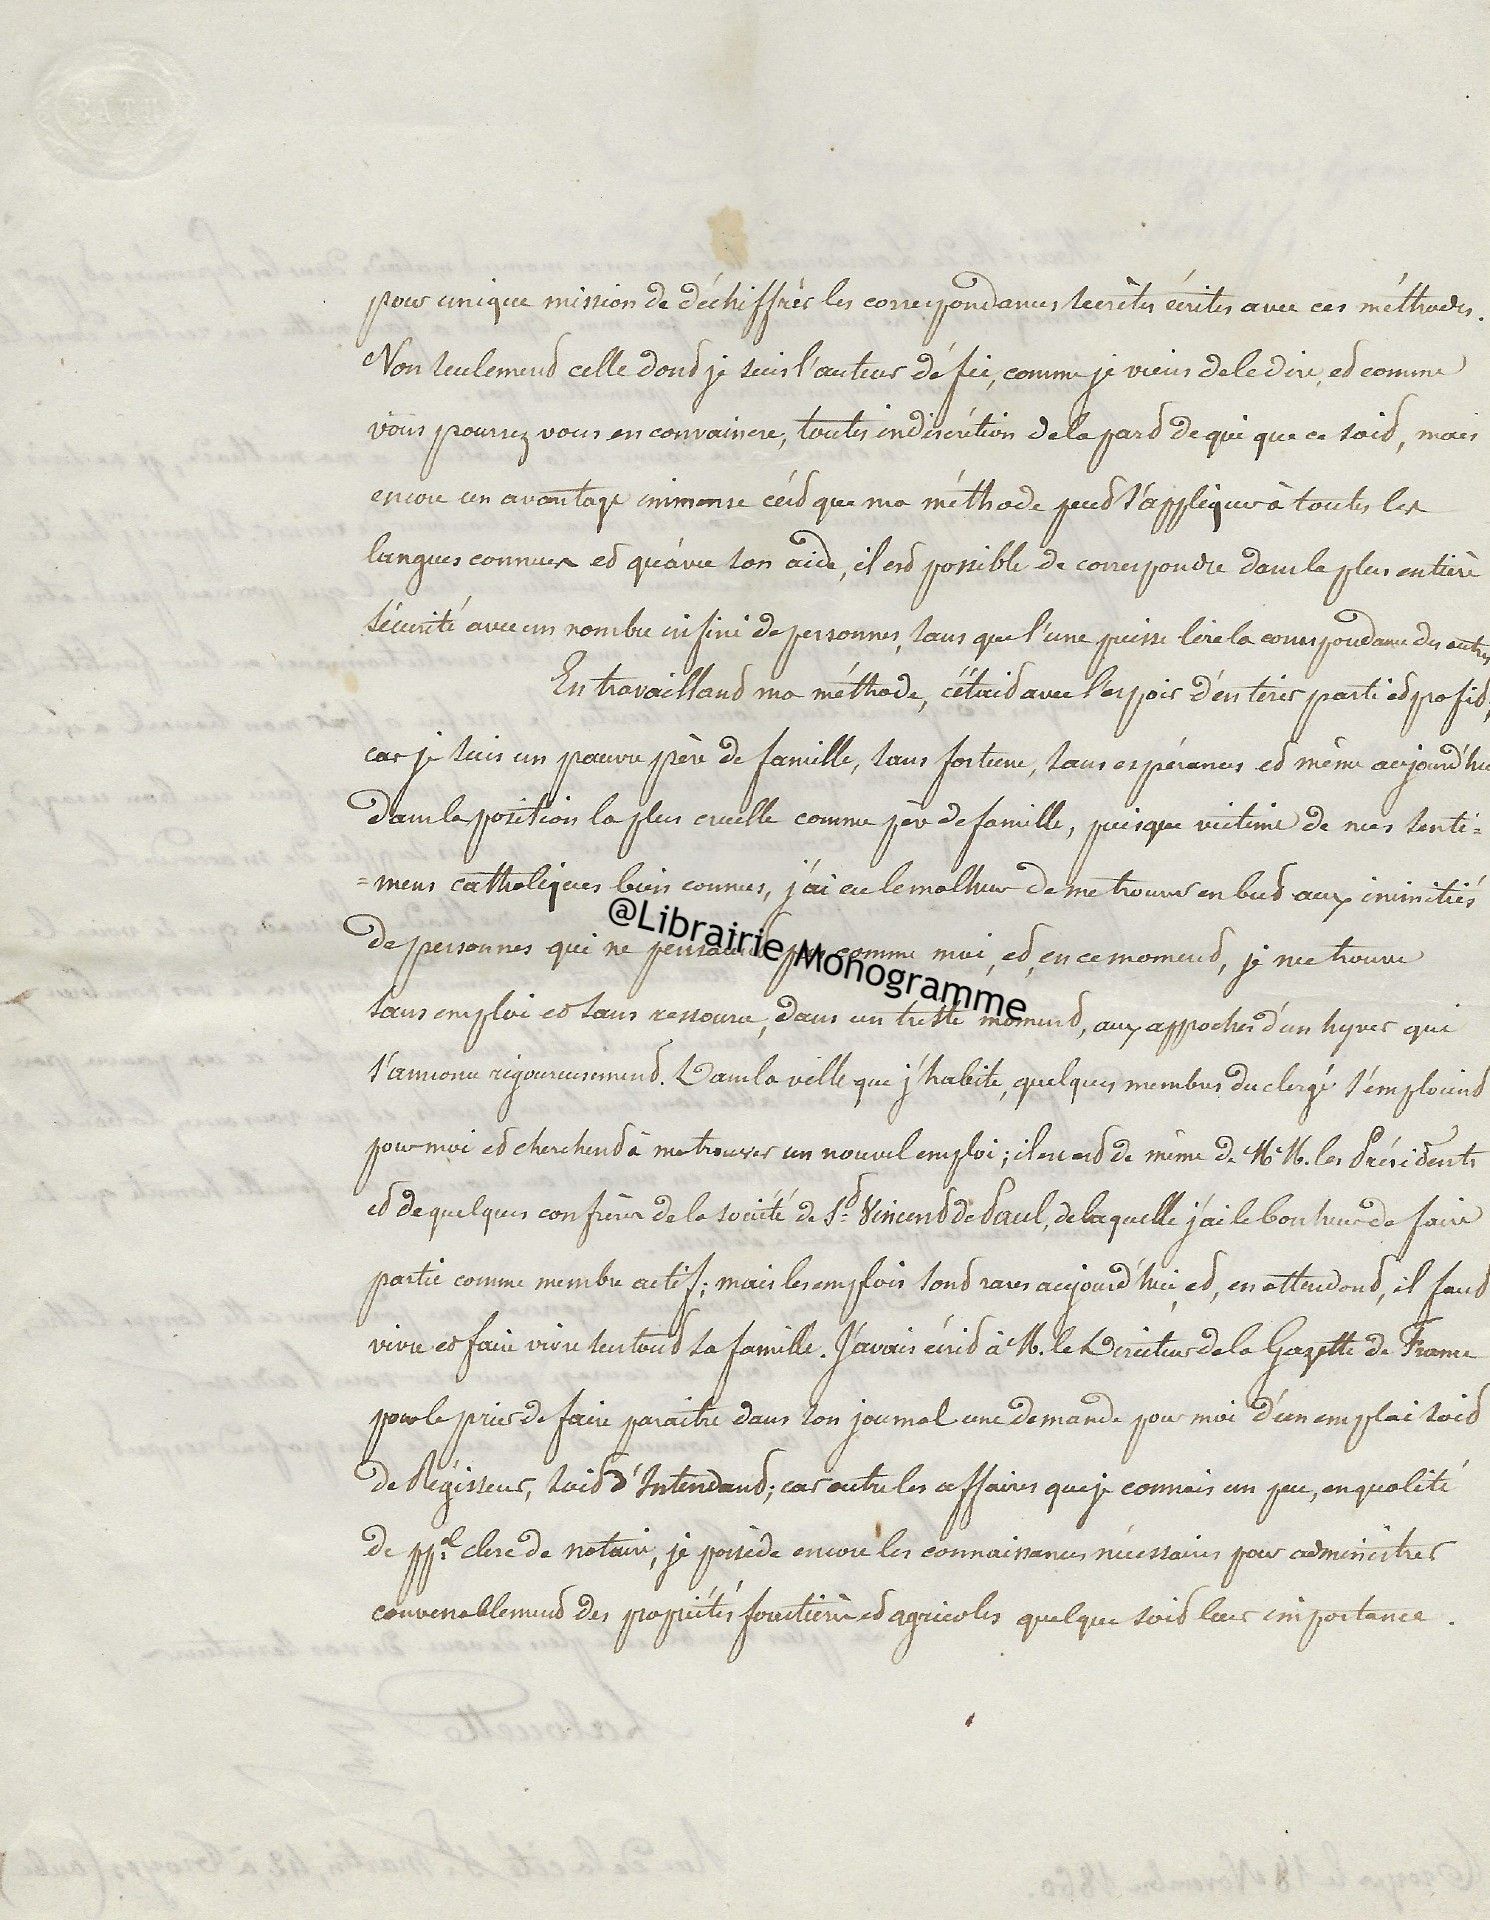 pour unique mission de déchiffrer les correspondances secrètes écrites avec ces méthodes.
Non seulement celle dont je suis l'auteur défie, comme je viens de le dire, et comme
vous pourrez vous en convaincre, toutes indiscrétion de la part de qui que ce soit, mais
encore un avantage immense c'est que ma méthode peut s'appliquer à toutes les
langues connues et qu'avec son aide, il est possible de correspondre dans la plus entière
sécurité avec un nombre infini de personnes, sans que l'une puisse lire la correspondance des autres
En travaillant ma méthode, c'était avec l'espoir d'en tirer parti et profit,
car je suis un pauvre père de famille, sans fortune, sans espérances et même aujourd'hui
dans la position la plus cruelle comme père de famille, puisque victime de mes senti=
=mens catholiques bien connus, j'ai eu le malheur de me trouver en but aux inimitiés
de personnes qui ne pensaient pas comme moi, et, en ce moment, je me trouve
sans emploi et sans ressource, dans un triste moment, aux approches d'un hyver qui
s'annonce rigoureusement. Dans la ville que j'habite, quelques membres du clergé s'emploient
pour moi et cherchent à me trouver un nouvel emploi; il en est de même de M.M. les Présidents
et de quelques confrères de la société de St Vincent de Paul, de laquelle j'ai le bonheur de faire
partie comme membre actif; mais les emplois sont rares aujourd'hui, et, en attendant, il faut
vivre et faire vivre surtout sa famille. J'avais écrit à M. le Directeur de la Gazette de France
pour le prier de faire paraître dans son journal une demande pour moi d'un emploi soit
de Régisseur, soit d'Intendant; car outre les affaires que je connais un peu, en qualité
de ppal clerc de notaire, je possède encore les connaissances nécessaires pour administrer
convenablement des propriétés foncières et agricoles quelque soit leur importance.
@Librairie Monogramme